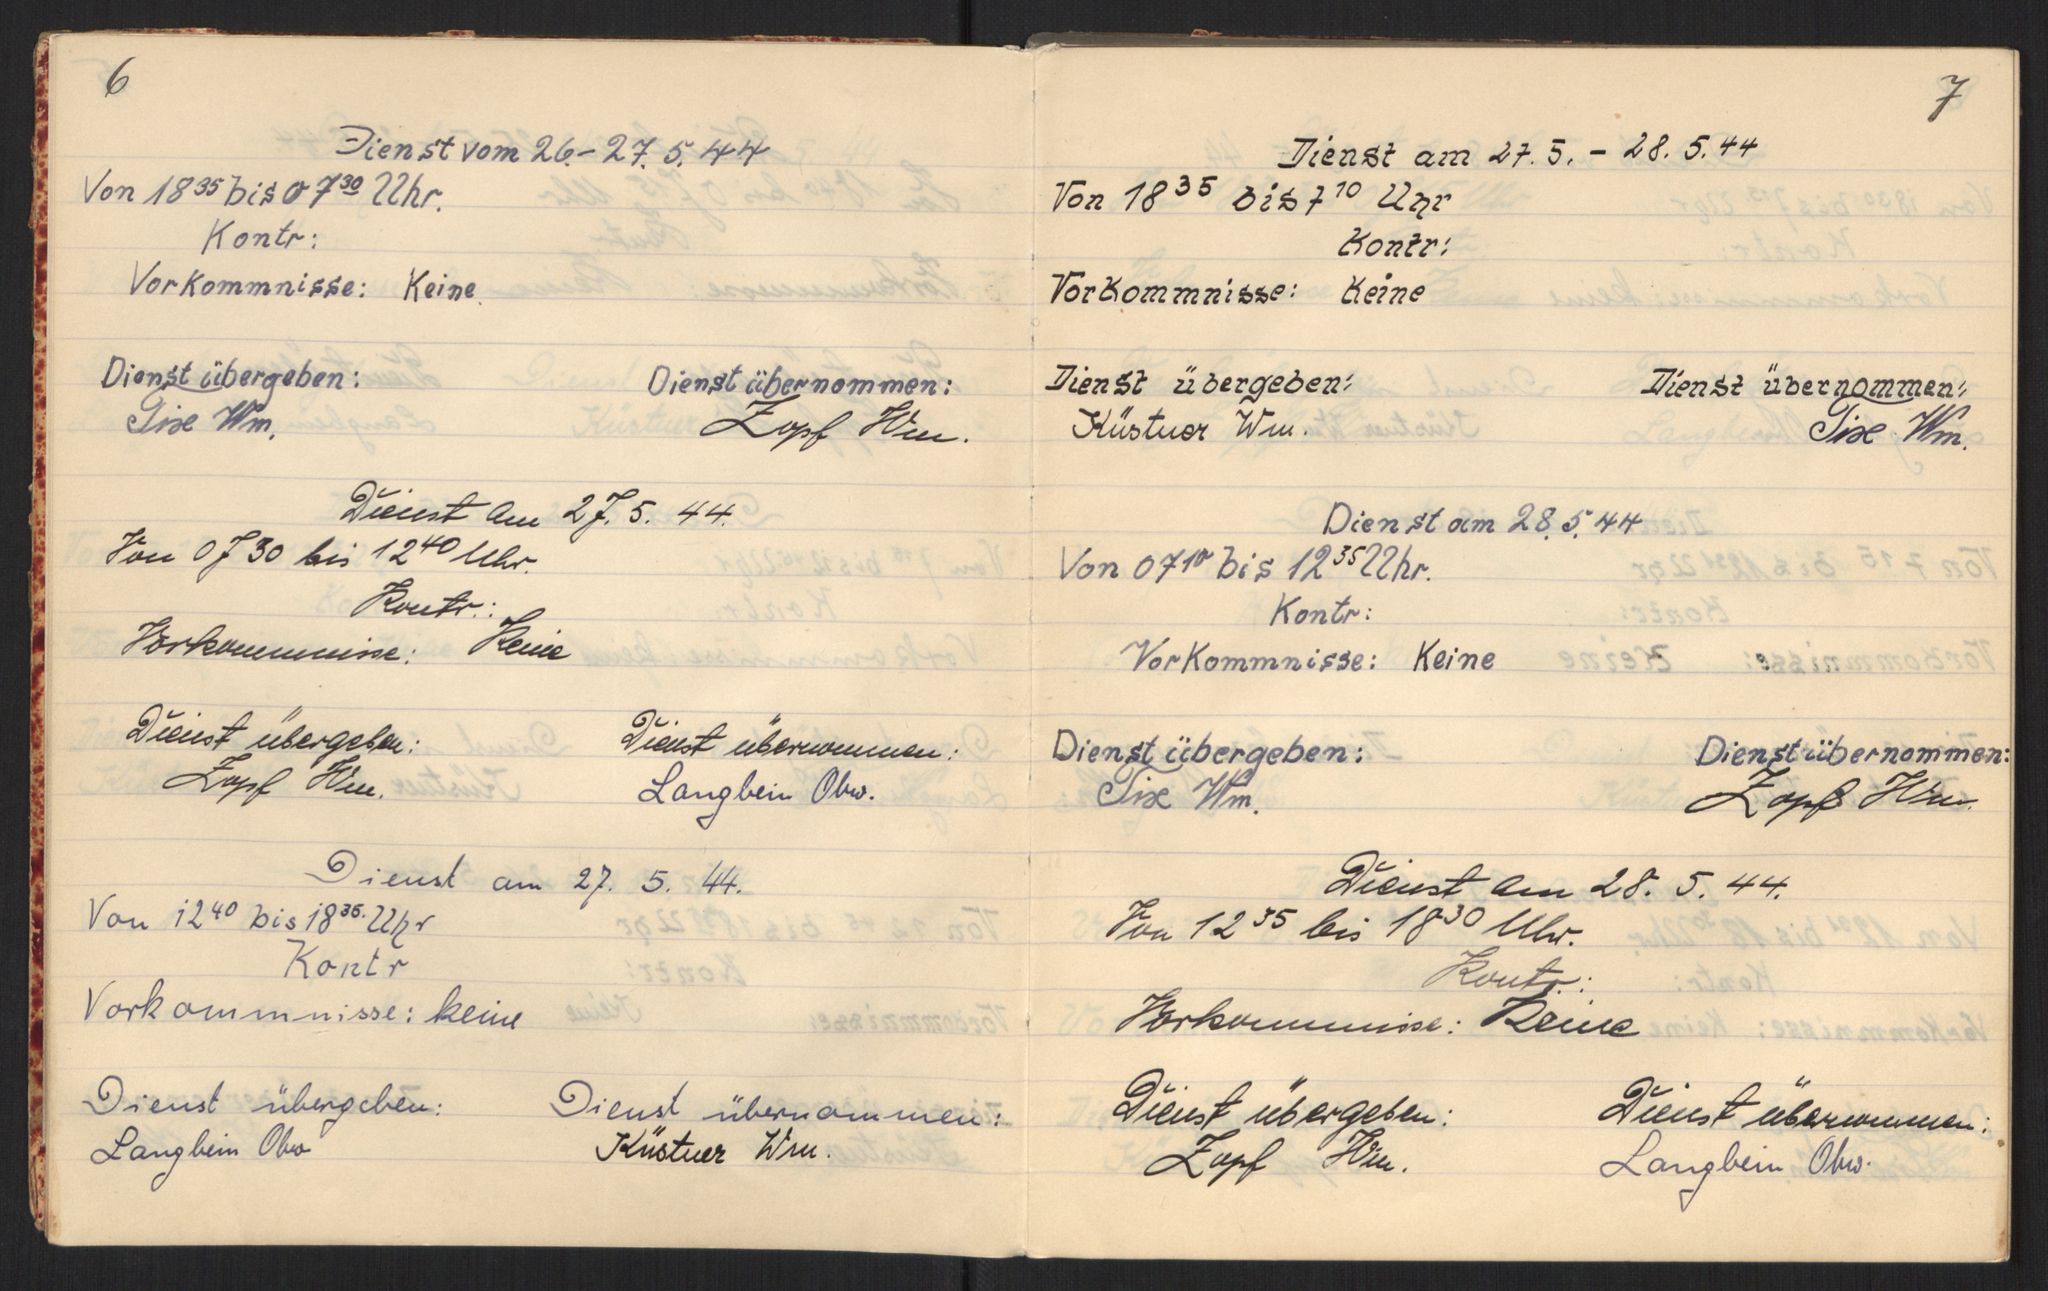 6
Dienst vom 26.- 27. 5. 44
Von 18 35 bis 0 7 30 Uhr.
Kontr:
Vorkommnisse: Keine.
Dienst übergeben: Dienst übernommen:
Tixe Wm. Zopf Wm.
Dienst am 27. 5. 44.
Von 07 30 bis 12 40 Uhr.
Kontr.:
Vorkommnisse: Keine
Dienst übergeben: Dienst übernommen:
Zopf Wm. Langbein Obw.
Dienst am 27. 5. 44.
Von 12 40 bis 18 35. Uhr
Kontr
Vorkommnisse: keine
Dienst übergeben: Dienst übernommen:
Langbein Obw Küstner Wm.
7
Dienst am 27. 5. - 28. 5. 44
Von 18 35 bis 7 10 Uhr
Kontr:
Vorkommnisse: Keine
Dienst übergeben: Dienst übernommen:
Küstner Wm. Tixe Wm.
Dienst am 28. 5. 44
Von 07 10 bis 12 35 Uhr.
Kontr:
Vorkommnisse: Keine
Dienst übergeben: Dienst übernommen:
Tixe Wm. Zopf Wm.
Dienst am 28. 5. 44.
Von 12 35 bis 18 30 Uhr.
Kontr.:
Vorkommnisse: Keine
Dienst übergeben: Dienst übernommen:
Zopf Wm. Langbein Obw.